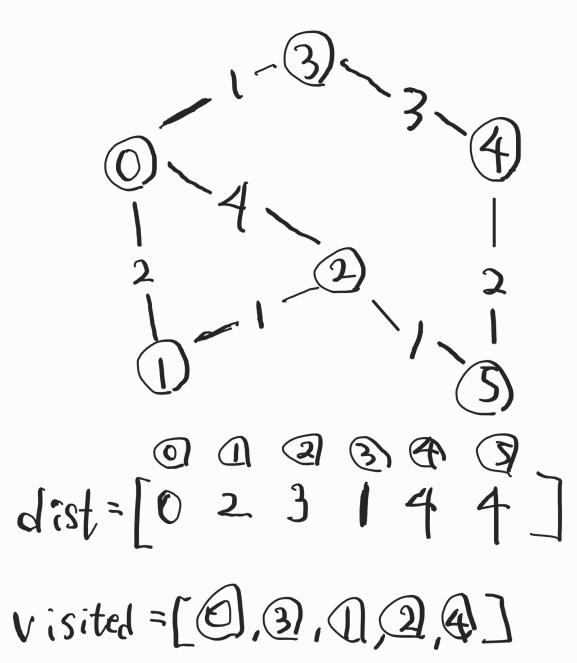 3
1
3
0
4
4
2
2
2
1
1
1
5
0 1 2 3 4 5
dist=[0 2 3 1 4 4]
visited=[0,3,1,2,4]